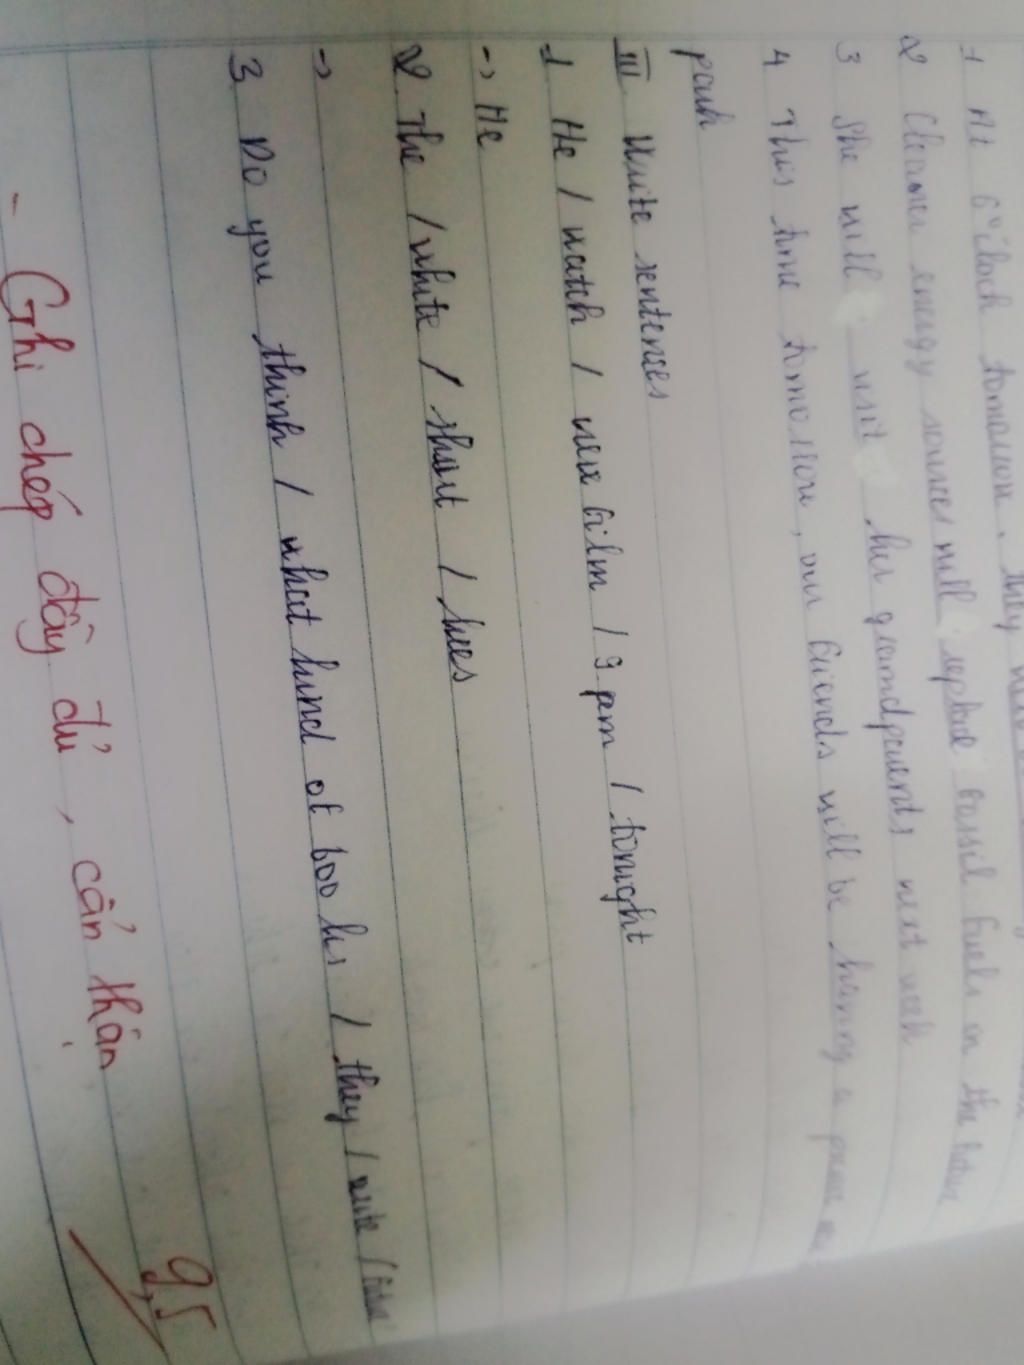 1 At 6 o'clock tomorrow, they
2 Cleaner energy sources will replace fossil fuels in the future
3 She will visit her grandparents next week
4 This time tomorrow, our friends will be having a
park
III Write sentences
1 He / watch / new film / 9 pm / tonight
-> He
2 The / white / shirt / hers
->
3 Do you think / what kind of books / they / write / future
- Ghi chép đầy đủ, cẩn thận
9,5